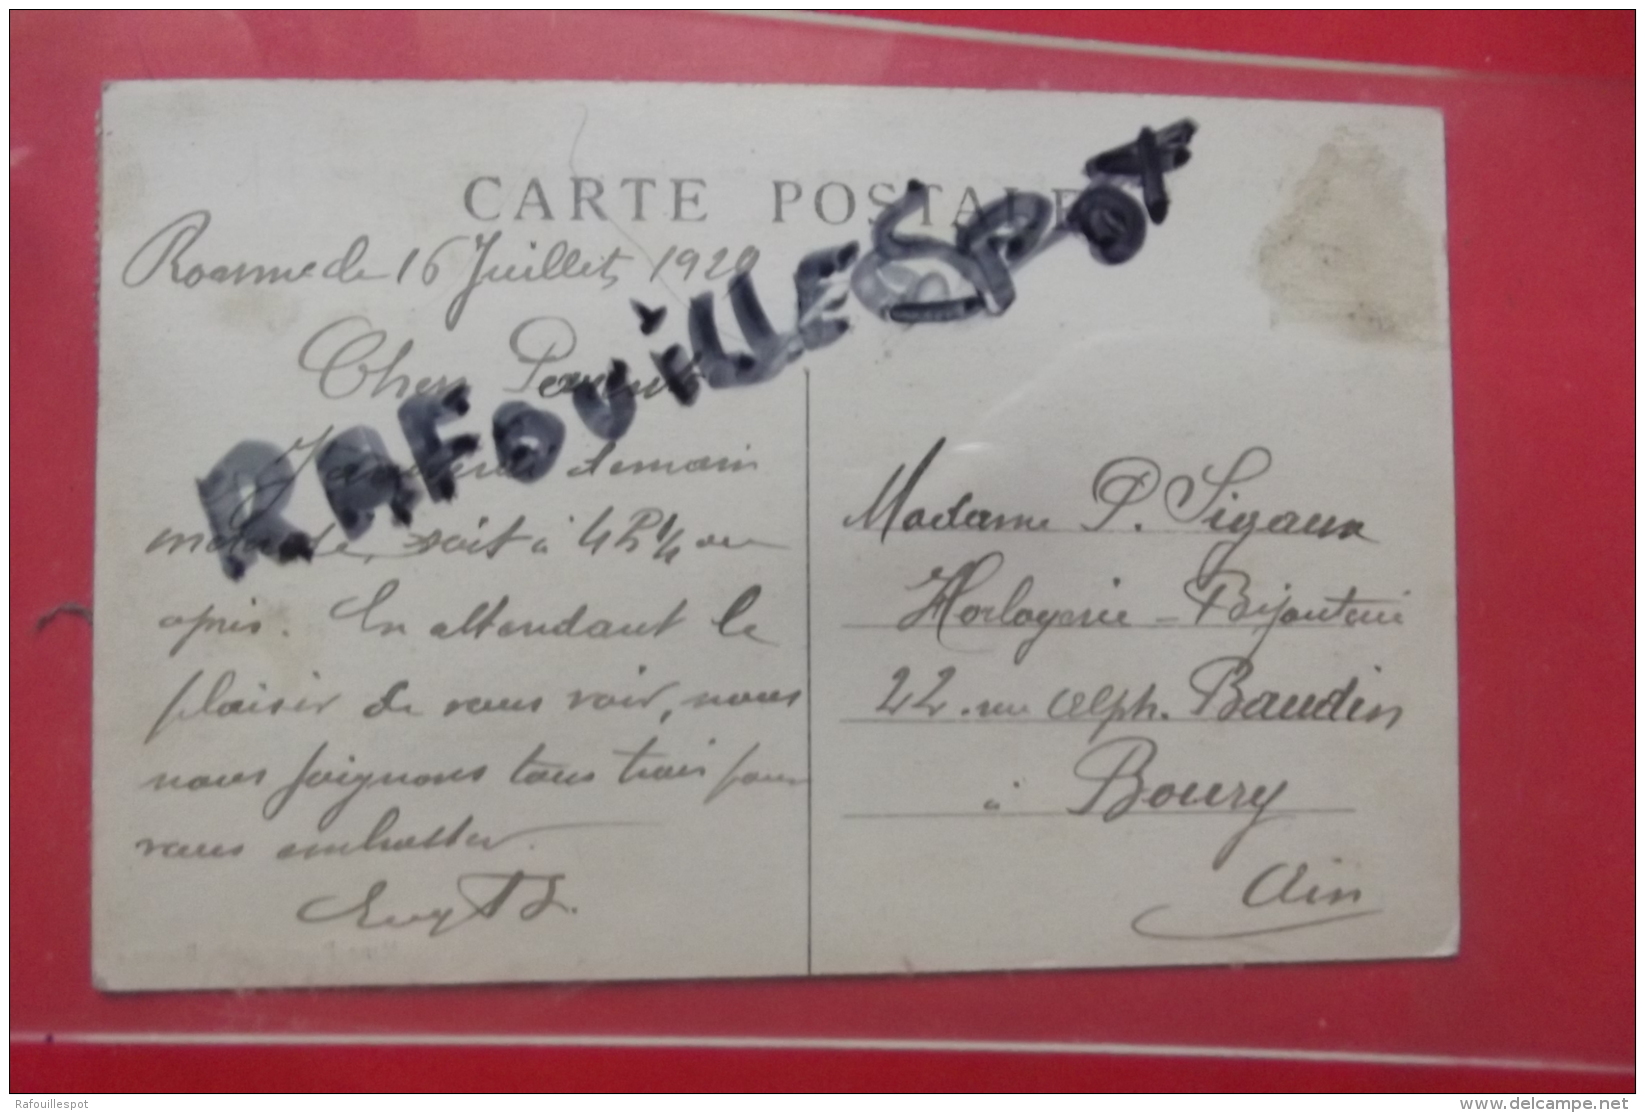 CARTE POSTALE
RAFOUILLESPOT
Roanne le 16 Juillet 1920
Cher Parents
demain
soit à 4h1/4 ou
après. En attendant le
plaisir de vous voir, nous
nous joignons tous trois pour
vous embrasser.
Madame P. Sigaux
Horlogerie - Bijouterie
22 rue Alph. Baudin
à Bourg
Ain
Rafouillespot
www.delcampe.net